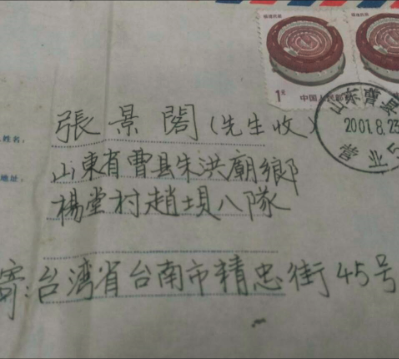 1元
中国人民邮政
山东曹
2001.8.23
张景阁（先生收）
姓名，
山東省曹县朱洪廟鄉
地址，
楊堂村趙垻八隊
寄:台湾省台南市精忠街45号